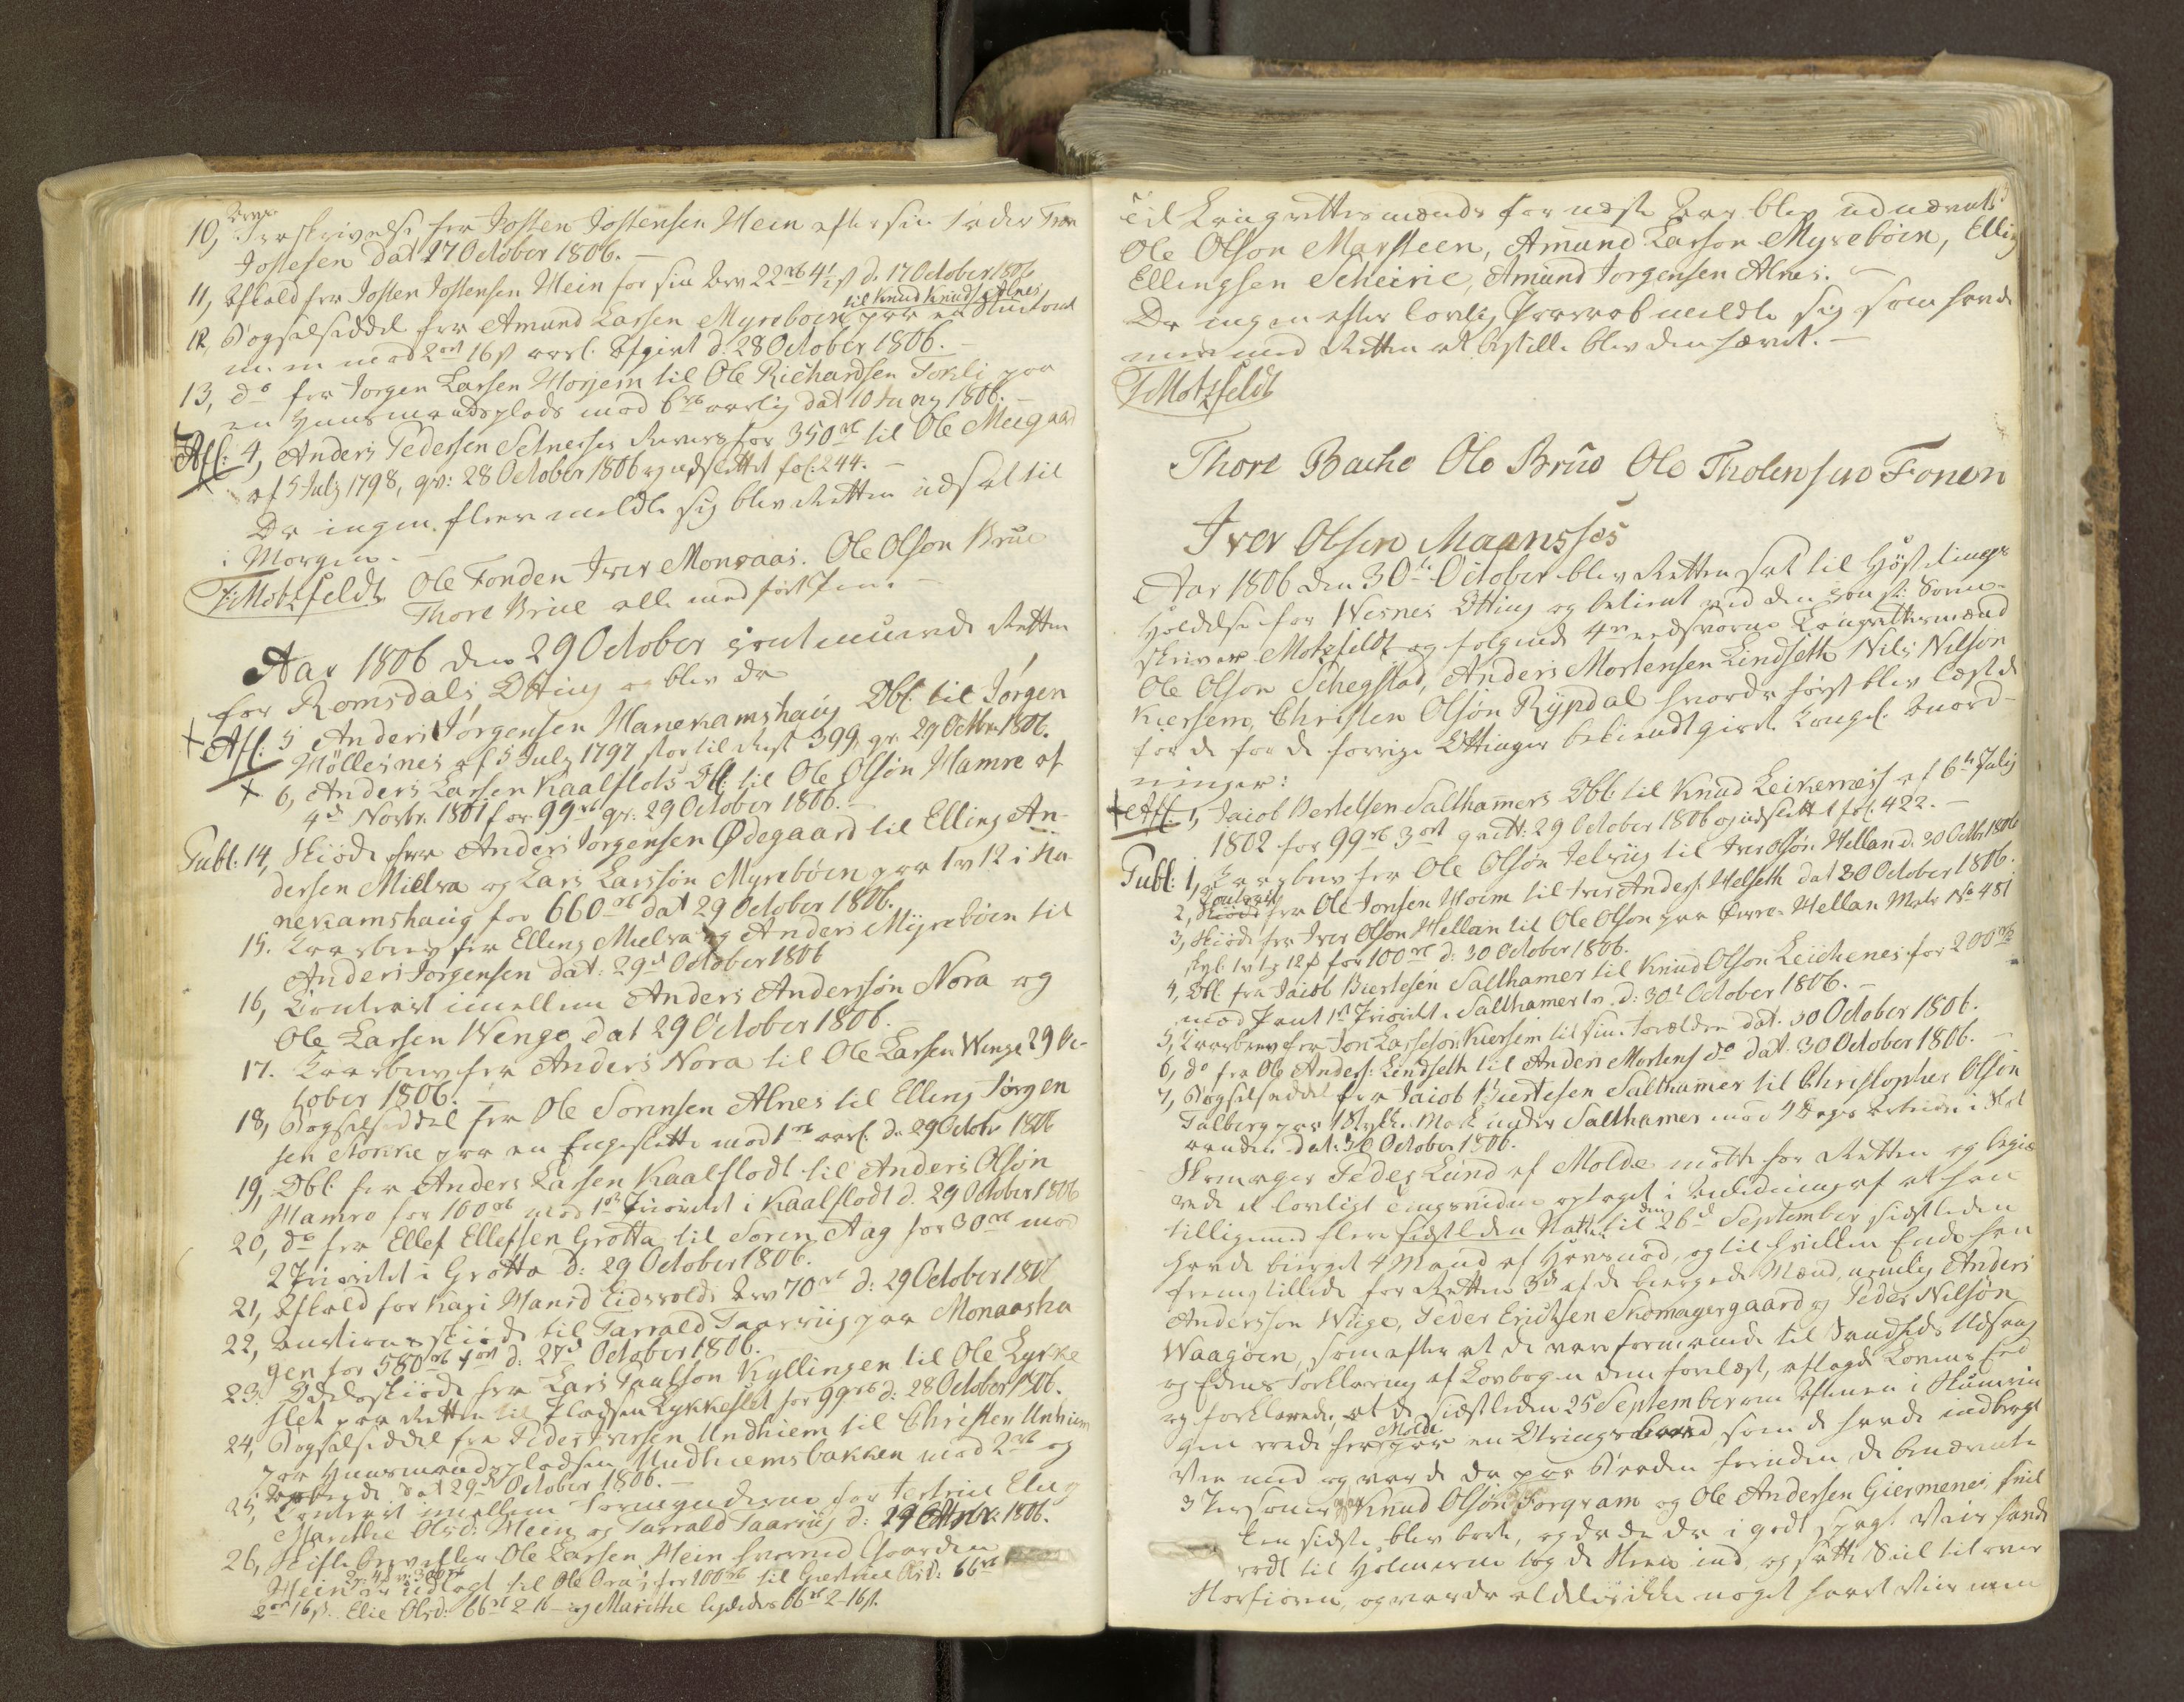 10, Arve Fraskrivelse fra Josten Jostensen Mein efter sin Fader
Jostesen dat 17 October 1806. —
11, Afkald fra Josten Jostensen Mein for sin Arv 22 rd 4 ort d. 17 October 1806
12, Bøgselseddel fra Amund Larsen Myrebøen til Knud Knuds: Alnes paa en
m. m mod 2 ort 16 s aarl. Afgivt d: 28 October 1806. —
13, do fra Jørgen Larsen Horjem til Ole Richardsen Tokli paa
en Huusmandsplads mod 6 rd aarlig dat 10 Juny 1806. —
Afl: 4, Anders Pedersen Setnesses Revers for 350 rd til Ole Meegaard
af 5 July 1798, qv: 28 October 1806 og udslettet fol: 244. —
Da ingen fleere meldte sig blev Retten udsat til
i Morgen. —
F: Motzfeldt Ole Fonden Iver Monsaas. Ole Olson Brue
Thore Brue alle med ført Pen. —
Aar 1806 den 29 October continuerede Retten
for Romsdals Otting og blev da
Afl: 5 Anders Jørgensen Hanekamshaug Obl: til Jørgen
Möllesnes af 5 July 1797 stor til Rest 399, qv. 29 Octbr: 1806.
6, Anders Larsen Kaalflots Obl: til Ole Olsøn Hamre af
4d Novbr. 1801 for 99 rd qv: 29 October 1806. —
Publ: 14, Skiøde fra Anders Jorgensen Ødegaard til Elling An-
dersen Mielva og Lars Larssøn Myrebøen paa 1 v 12 i Ha-
nekamshaug for 660 rd dat 29 October 1806.
15. Kaarbrev fra Elling Mielva og Anders Myrebøen til
Anders Jorgensen dat: 29d October 1806
16, Contract imellem Anders Anderssøn Nora og
Ole Larsen Wenge dat 29 October 1806.
17. Kaarbrev fra Anders Nora til Ole Larsen Wenge 29 Oc-
tober 1806. —
18, Bøgselseddel fra Ole Sorensen Alnes til Elling Jørgen
sen Stokke paa en Engeslette mod 1 rd aarl. d: 29 Octobr 1806
19, Obl: fra Anders Larsen Kaalflodt til Anders Olsøn
Hamre for 100 rd mod 1ste Prioritet i Kaalflodt d. 29 October 1806
20, do fra Ellef Ellefsen Grøtta til Soren Aag for 30 rd mod
2 Prioritet i Grøtta d: 29 October 1806.
21, Afkald for Kari Hansd Eidsvolds Arv 70 rd d: 29 October 1806
22, Auctions skiøde til Tarrald Taarviig paa Monaasha
gen for 580 rd 1 ort d: 27d October 1806.
23. Odelsskiøde fra Lars Paulsson Kyllingen til Ole Lykke
slet paa Retten til Pladsen Lykkeslet for 99 rd d: 28 October 1806.
24, Bøgselseddel fra Peder Iversen Undhiem til Christen Unhiem
paa Huusmandspladsen Undhiemsbakken mod 2 rd og
Arbeide dat 29d October 1806. —
25, Contract imellem Formynderne for
Marethe Olsd: Mein og Tarrald Taarviig d: 29 Octbr: 1806.
26, Skiftebrev efter Ole Larsen Mein hvorved Gaarden
Mein er udlagt til Ole for 100 rd til Olsd: 66 rd
2 ort 16 s. Elie Olsd: 66 rd 2-16 — og Marithe ligeledes 66 rd 2-16 s.
Til Laugrettesmænd for næste Aar blev udnævnt
Ole Olson Marsteen, Amund Larson Myrebøen, Elling
Ellingsen Scheirie, Amund Jorgensen Alnes. —
Da ingen efter lovlig Paaraab meldte sig som havde
mere med Retten at bestille blev den hævet. —
F Motzfeldt
Thore Bache Ole Brue Ole Tholensen Fonen
Iver Olsen Maansses
Aar 1806 den 30te October blev Retten sat til Høstetings
Holdelse for Wesnes Otting og betient ved den const: Soren-
skriver Motzfeldt og følgende 4re eedsvorne Laugrettesmænd
Ole Olson Schegstad, Anders Mortensen Lindseth Nils Nilson
Kiersem, Christen Olsøn Rypdal hvorda først blev læst de
for de forrige Ottinger bekiendtgiorte Kongel. Anord-
ninger:
Afl: 1, Jacob Bertelsen Salthamers Obl: til Knud Leikernes af 6te July
1802 for 99 rd 3 ort qvitt: 29 October 1806 og udslettet fol: 422. —
Publ: 1, Kaarbrev fra Ole Olsøn til Iver Olsøn Hellan d. 30 Octbr 1806
2, Contract fra Ole Jonsen Hoem til Iver Anders: Helseth dat 20 October 1806.
3, Skiøde fra Iver Olson Hellan til Ole Olson paa Øvre- Hellan Matr No 481
skyl: 1 v 1 12 s for 100 rd d: 30 October 1806.
4, Obl: fra Jacob Biertesen Salthamer til Knud Olson Leichenes for 200 rd
mod Pant 1ste Prioritet i Salthamer d: 30t October 1806. —
5, Kaarbrev fra Jon Larssøn Kiersem til sine Forældre dat. 30 October 1806.
6, do fra Ole Anders: Lindseth til Anders Mortens do dat. 30 October 1806. —
7, Bøgselseddel fra Jacob Biertesen Salthamer til Christopher Olsøn
Talberg paa 1 Stykke Mark under Salthamer mod 4 Dages Arbeide i
aanden dat: 30 October 1806.
Skomager Peder Lund af Molde mødte for Retten og begiæ
rede et lovligt Tingsvidne optaget i Anledning af at han
tilligemed flere sidstleden Natten til den 26d September sidstleden
havde bierget 4 Mand af Havsnød, og til hvilken Ende han
fremstillede for Retten 3de af de biergede Mænd, nemlig Anders
Andersson Wiige, Peder Erichsen Skomagergaard og Peder Nilsøn
Waagøen, som efter at de vare formanede til Sandheds Udsagn
og Edens Forklaring af Lovbogen dem forelæst, aflagde Lovens Eed
og forklarede, at de sidstleden 25 September om Aftenen i Skumrin
gen roede fra Molde paa en Ottrings Baad, som de havde indbragt
Veed med og vare da paa Baaden foruden de benævnte
3 Personer og Knud Olsøn Forgram og Ole Andersen Giermenes, hvil
ken sidste blev borte, og da de da i godt Veir havde
roet til Holmerne tog de ind, og satte Seil til over
og var da aldeles ikke noget haart Veir men